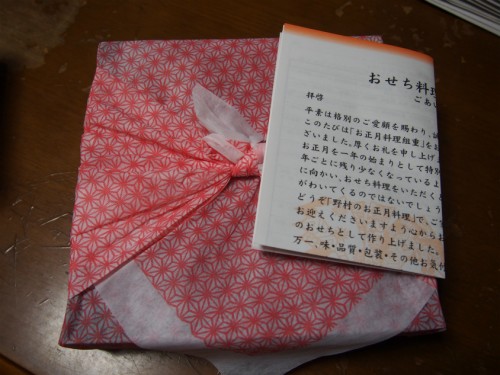 おせち料理
ごあい
拝啓
平素は格別のご愛顧を賜わり、誠
このたびは「お正月料理組重」をお
ざいました。厚くお礼を申し上げ
お正月を一年の始まりとして特別
年ごとに残り少なくなっているよ
に向かい、おせち料理をいただく
がわいてくるのではないでしょう
どうぞ「野村のお正月料理」で、ご
お迎えくださいますよう心からお
のおせちとして作り上げました。
万一、味・品質・包装・その他お気付